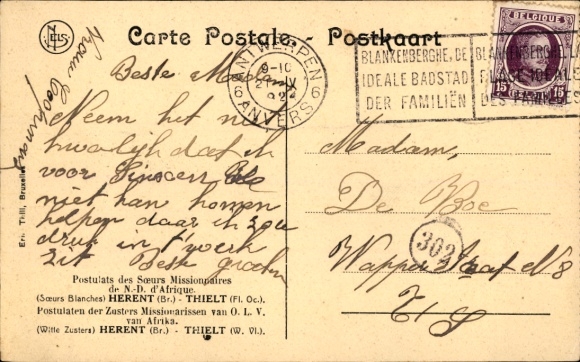 NELS
Carte Postale - Postkaart
ANTWERPEN
9-10
6 6
ANVERS
BLANKENBERGHE, DE
IDEALE BADSTAD
DER FAMILIËN
BLANKENBERGHE, L
PLAGE IDEALE
DES FAMILLES
BELGIQUE
15 15
Beste
Neem het niet
kwalijk dat ik
voor
niet kan komen
helpen daar ik zoo
druk in t'werk
zit Beste groeten
Vrouw
Ern. Thill, Bruxelles
Postulats des Sœurs Missionnaires
de N.-D. d'Afrique.
(Sœurs Blanches) HERENT (Br.) - THIELT (Fl. Oc.).
Postulaten der Zusters Missionarissen van O. L. V.
van Afrika.
(Witte Zusters) HERENT (Br.) - THIELT (W. Vl.).
Madam,
De Boe
302
Wapperstraat N 8